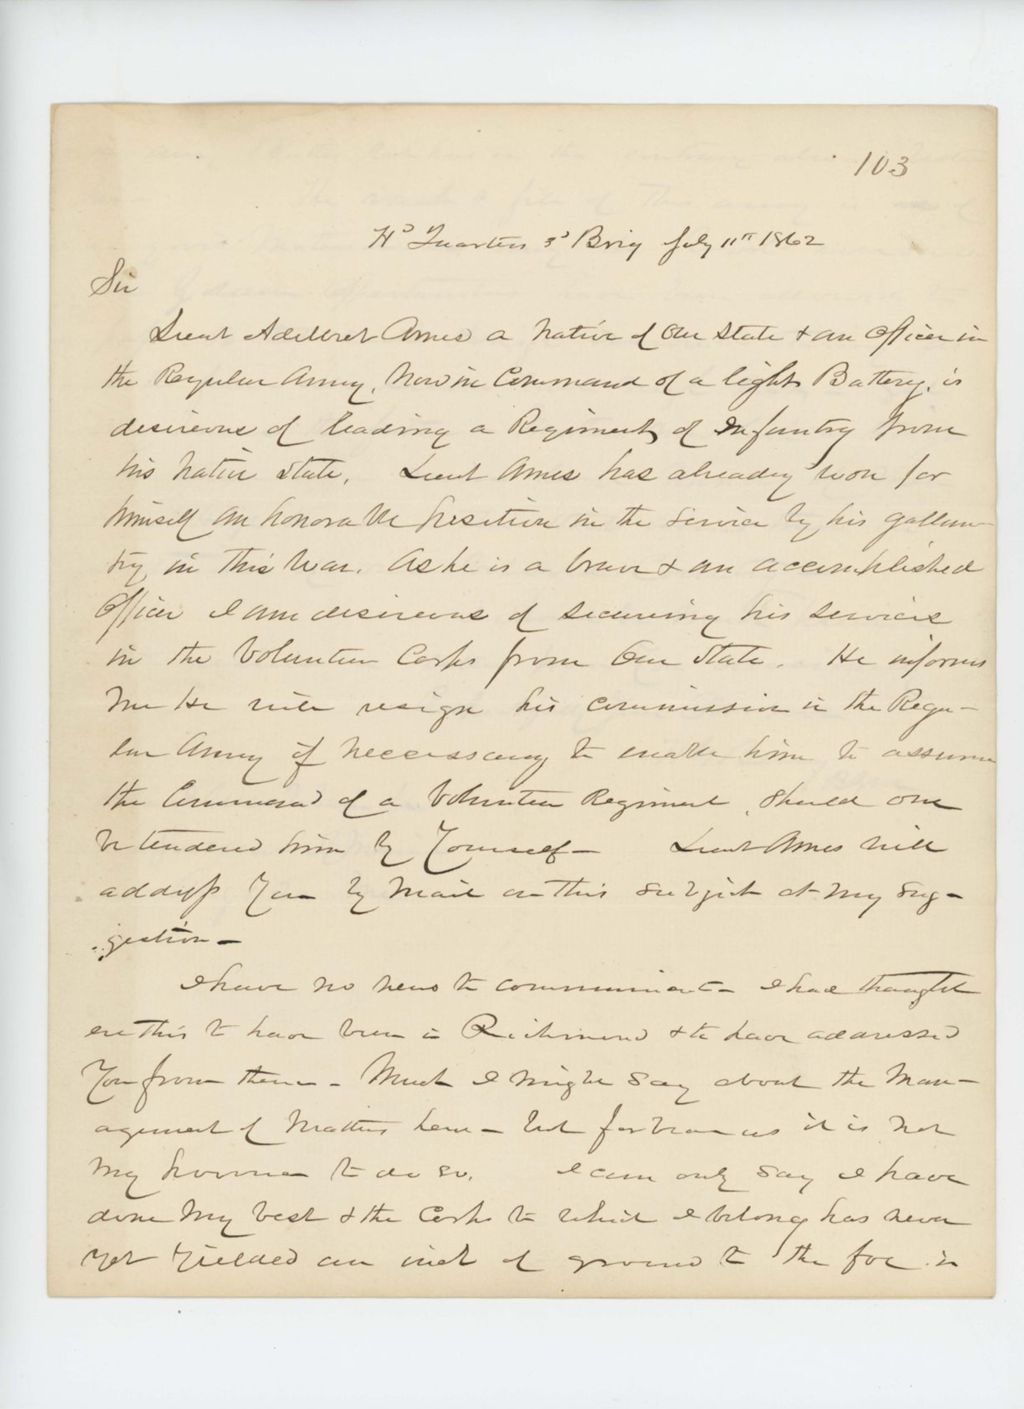 103
Hd Quarters 3d Brig July 11th 1862
Sir
Lieut Adelbert Ames a Native of Our State & an Officer in
the Regular Army, Now in Command of a light Battery, is
desireous of leading a Regiment of Infantry from
his Native State. Lieut Ames has already won for
himself an honorable position in the Service by his gallan-
try in this War. As he is a brave & an accomplished
Officer I am desireous of securing his services
in the Volunteer Corps from Our State. He informs
Me He will resign his commission in the Regu-
lar Army if neccessary to enable him to assume
the Command of a Volunteer Regiment, Should one
be tendered him by Yourself - Lieut Ames will
address You by Mail on this subject at My Sug-
gestion -
I have no news to communicate - I had thought
ere this to have been in Richmond & to have addressed
You from there - Much I might say about the Man-
agement of Matters here - but forbear as it is Not
My province to do so. I can only say I have
done My best & the Corps to which I belong has never
yet Yielded an inch of ground to the foe in